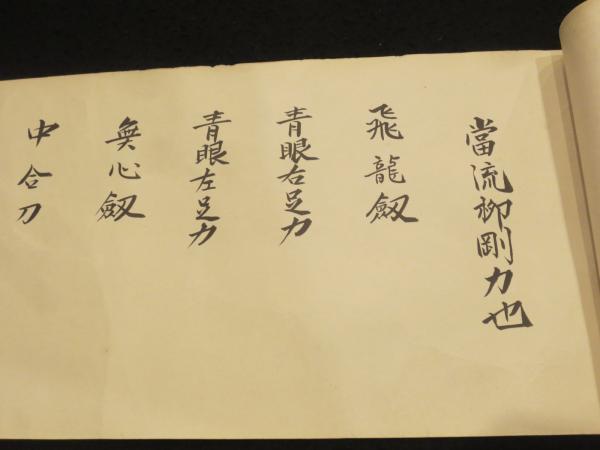 當流柳剛力也
飛龍劔
青眼右足力
青眼左足力
無心劔
中合刀